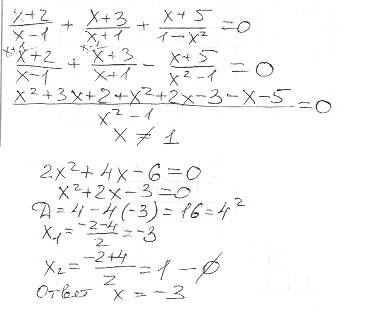 x+2/x-1 + x+3/x+1 + x+5/1-x² = 0
x+1 x-1
x+2/x-1 + x+3/x+1 - x+5/x²-1 = 0
x²+3x+2+x²+2x-3-x-5/x²-1 = 0
x ≠ 1
2x²+4x-6=0
x²+2x-3=0
Д=4-4(-3)=16=4²
x₁=-2-4/2=-3
x₂=-2+4/2=1-∅
Ответ x=-3